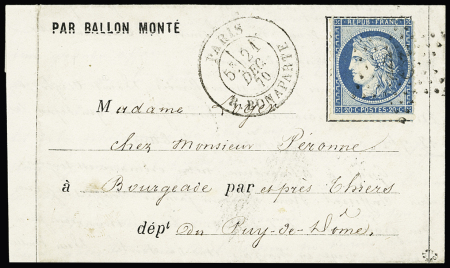 PAR BALLON MONTÉ
PARIS
5E 21
DEC
70
R. BONAPARTE
REPUB. FRANC.
20 C. POSTES 20 C.
Madame
chez Monsieur Péronne
à Bourgeade par et près Thiers
dépt du Puy-de-Dôme.